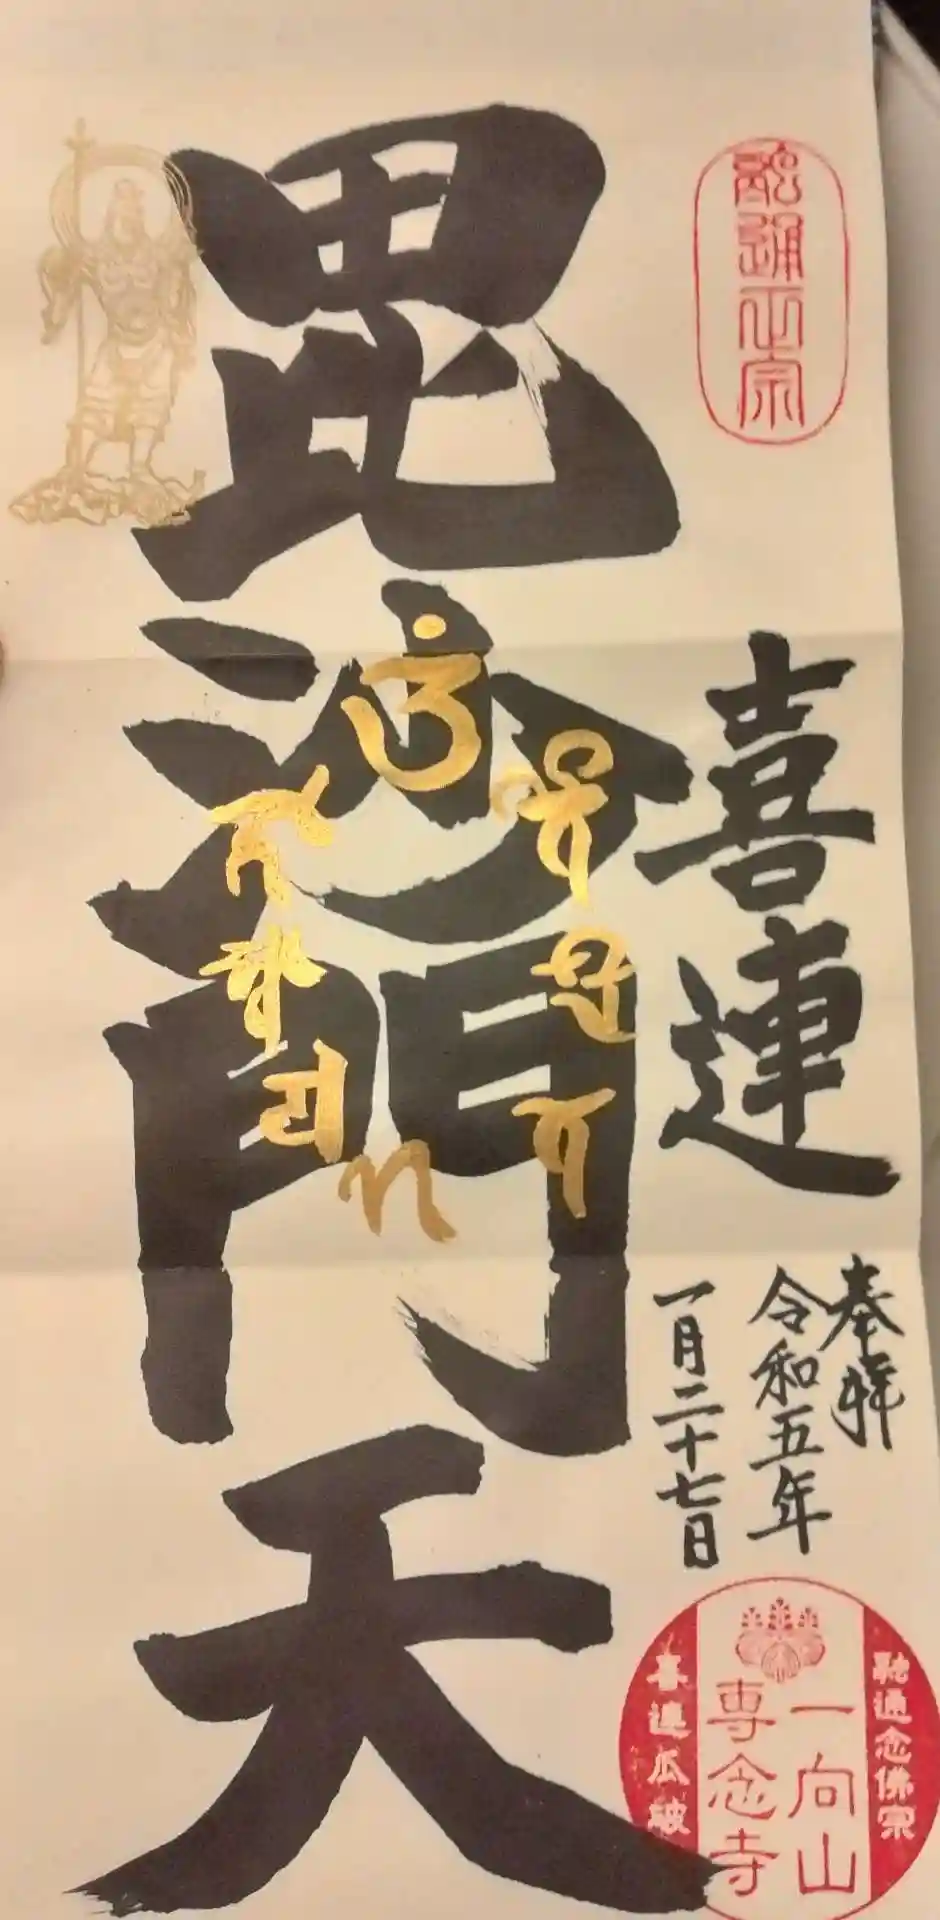 融通正宗
喜連
奉拝
令和五年
一月二十七日
毘沙門天
融通念佛宗
一向山
専念寺
喜連瓜破